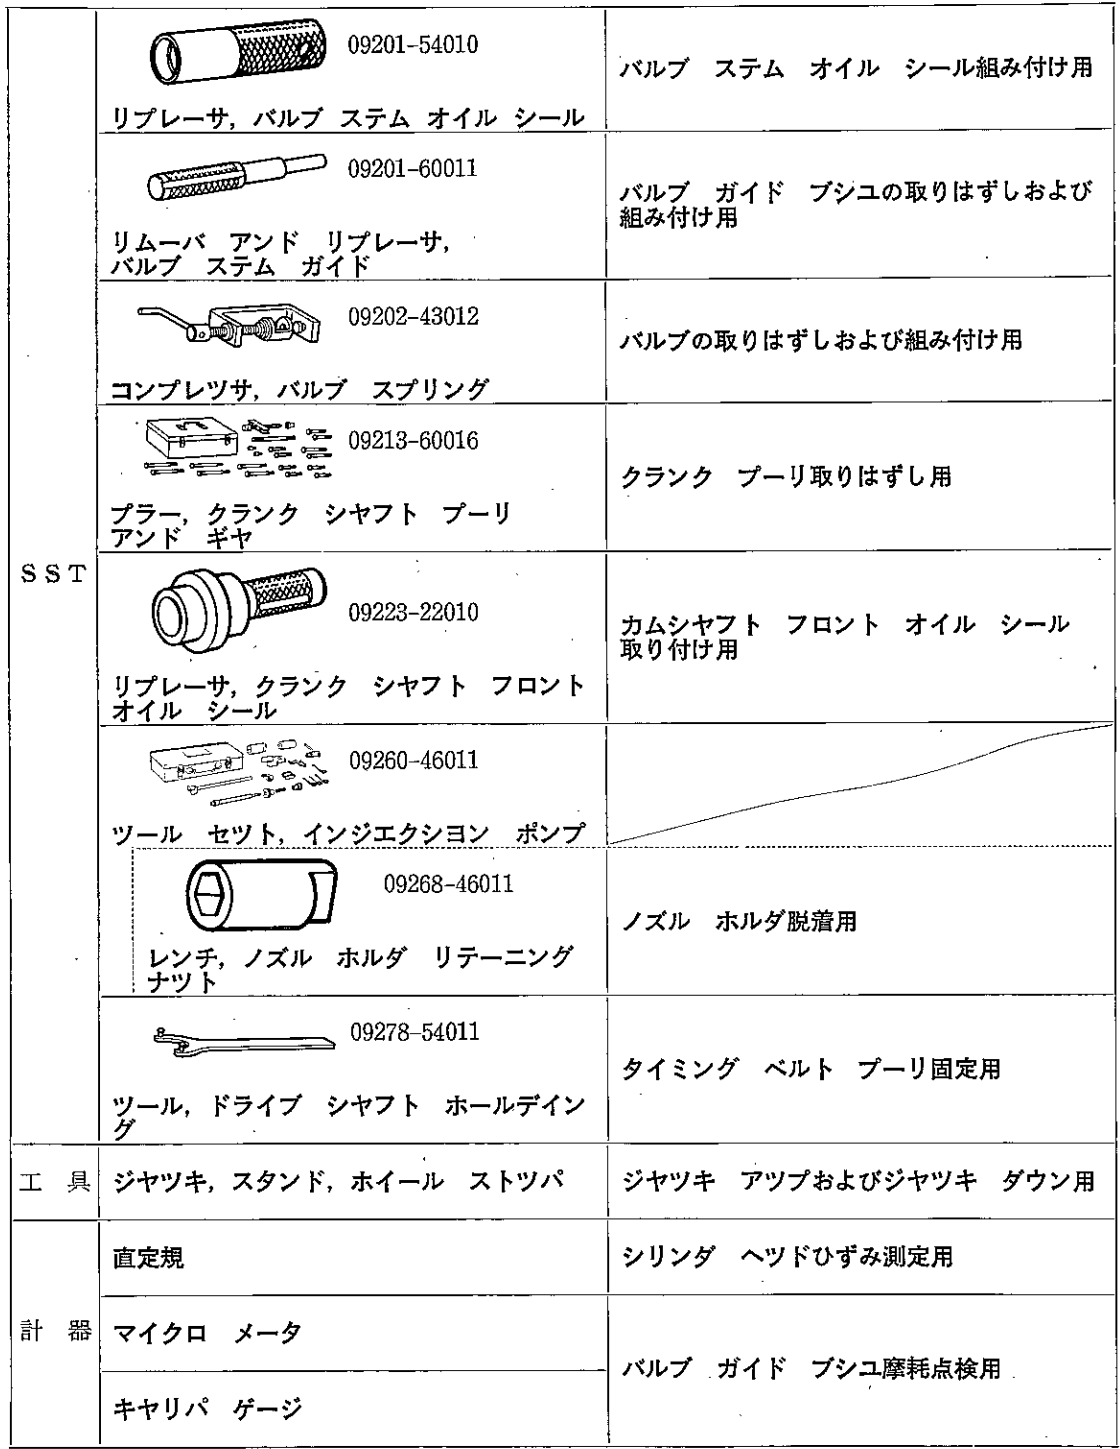 09201-54010
リプレーサ, バルブ ステム オイル シール
バルブ ステム オイル シール組み付け用
09201-60011
リムーバ アンド リプレーサ,
バルブ ステム ガイド
バルブ ガイド ブシユの取りはずしおよび
組み付け用
09202-43012
コンプレツサ, バルブ スプリング
バルブの取りはずしおよび組み付け用
09213-60016
プラー, クランク シヤフト プーリ
アンド ギヤ
クランク プーリ取りはずし用
SST
09223-22010
リプレーサ, クランク シヤフト フロント
オイル シール
カムシヤフト フロント オイル シール
取り付け用
09260-46011
ツール セツト, インジエクシヨン ポンプ
09268-46011
レンチ, ノズル ホルダ リテーニング
ナツト
ノズル ホルダ脱着用
09278-54011
ツール, ドライブ シヤフト ホールデイン
グ
タイミング ベルト プーリ固定用
工 具
ジヤツキ, スタンド, ホイール ストツパ
ジヤツキ アツプおよびジヤツキ ダウン用
計 器
直定規
シリンダ ヘツドひずみ測定用
マイクロ メータ
キヤリパ ゲージ
バルブ ガイド ブシユ摩耗点検用